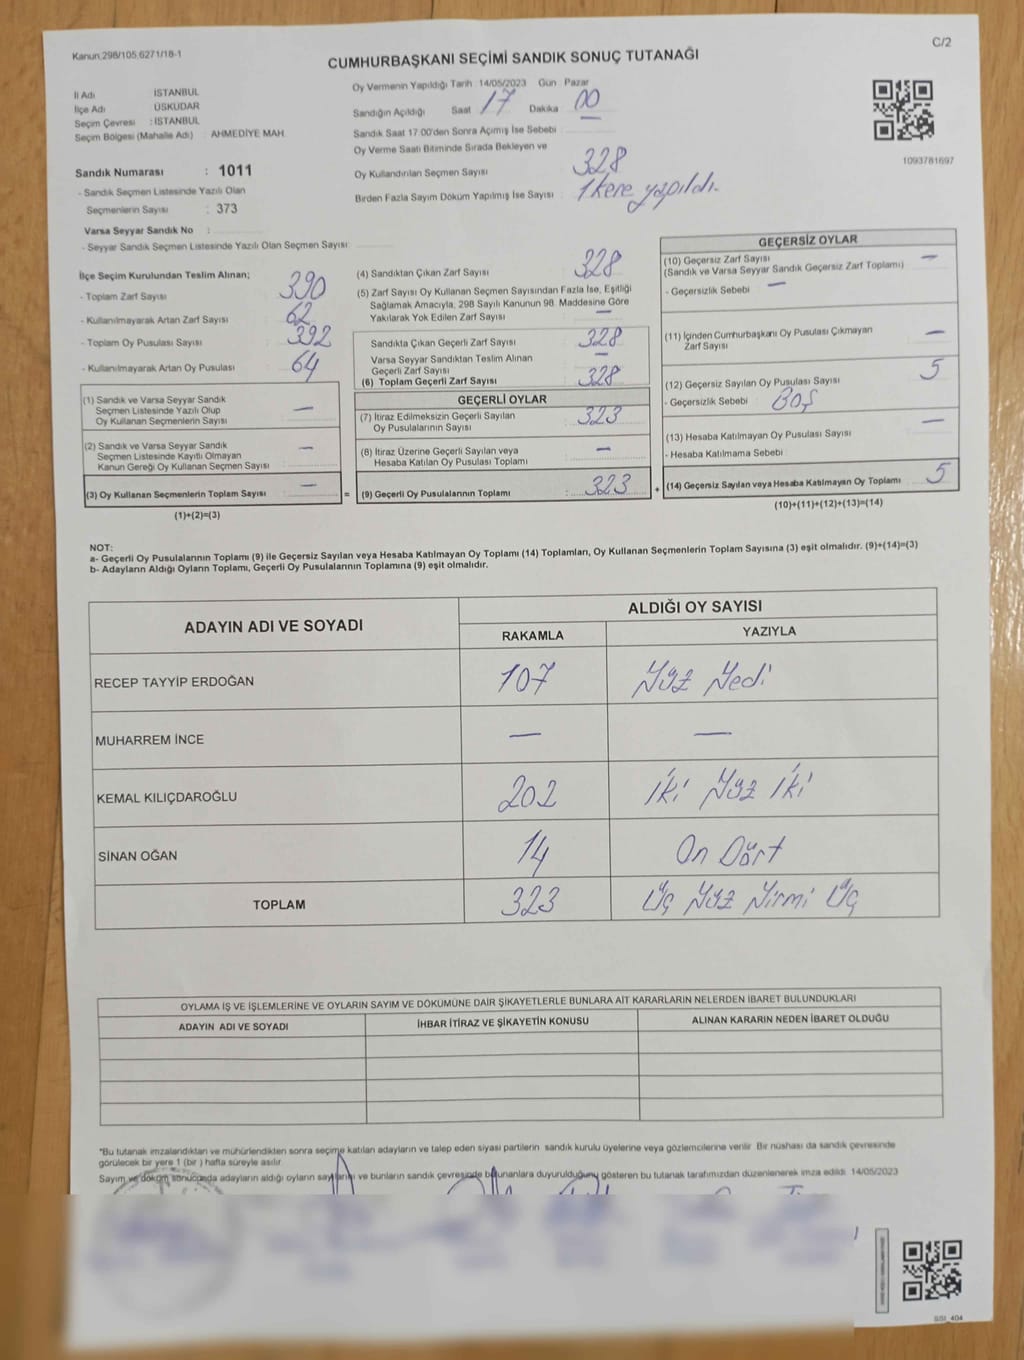 Kanun.298/105,6271/18-1
C/2
CUMHURBAŞKANI SEÇİMİ SANDIK SONUÇ TUTANAĞI
İl Adı : İSTANBUL
İlçe Adı ÜSKÜDAR
Seçim Çevresi : İSTANBUL
Seçim Bölgesi (Mahalle Adı) : AHMEDİYE MAH.
Sandık Numarası : 1011
- Sandık Seçmen Listesinde Yazılı Olan
Seçmenlerin Sayısı : 373
Varsa Seyyar Sandık No :
- Seyyar Sandık Seçmen Listesinde Yazılı Olan Seçmen Sayısı:
Oy Vermenin Yapıldığı Tarih 14/05/2023 Gün Pazar
Sandığın Açıldığı Saat 17 Dakika 00
Sandık Saat 17.00'den Sonra Açımış İse Sebebi
Oy Verme Saati Bitiminde Sırada Bekleyen ve
Oy Kullandırılan Seçmen Sayısı 328
Birden Fazla Sayım Döküm Yapılmış İse Sayısı 1 kere yapıldı.
1093781697
İlçe Seçim Kurulundan Teslim Alınan;
- Toplam Zarf Sayısı 390
- Kullanılmayarak Artan Zarf Sayısı 62
- Toplam Oy Pusulası Sayısı 392
- Kullanılmayarak Artan Oy Pusulası 64
(1) Sandık ve Varsa Seyyar Sandık
Seçmen Listesinde Yazılı Olup
Oy Kullanan Seçmenlerin Sayısı —
(2) Sandık ve Varsa Seyyar Sandık
Seçmen Listesinde Kayıtlı Olmayan
Kanun Gereği Oy Kullanan Seçmen Sayısı —
(3) Oy Kullanan Seçmenlerin Toplam Sayısı : —
(1)+(2)=(3)
(4) Sandıktan Çıkan Zarf Sayısı 328
(5) Zarf Sayısı Oy Kullanan Seçmen Sayısından Fazla İse, Eşitliği
Sağlamak Amacıyla, 298 Sayılı Kanunun 98. Maddesine Göre
Yakılarak Yok Edilen Zarf Sayısı —
Sandıkta Çıkan Geçerli Zarf Sayısı 328
Varsa Seyyar Sandıktan Teslim Alınan
Geçerli Zarf Sayısı —
(6) Toplam Geçerli Zarf Sayısı : 328
GEÇERLİ OYLAR
(7) İtiraz Edilmeksizin Geçerli Sayılan
Oy Pusulalarının Sayısı 323
(8) İtiraz Üzerine Geçerli Sayılan veya
Hesaba Katılan Oy Pusulası Toplamı —
= (9) Geçerli Oy Pusulalarının Toplamı : 323
GEÇERSİZ OYLAR
(10) Geçersiz Zarf Sayısı —
(Sandık ve Varsa Seyyar Sandık Geçersiz Zarf Toplamı)
- Geçersizlik Sebebi —
(11) İçinden Cumhurbaşkanı Oy Pusulası Çıkmayan
Zarf Sayısı —
(12) Geçersiz Sayılan Oy Pusulası Sayısı 5
- Geçersizlik Sebebi BOŞ
(13) Hesaba Katılmayan Oy Pusulası Sayısı —
- Hesaba Katılmama Sebebi
+ (14) Geçersiz Sayılan veya Hesaba Katılmayan Oy Toplamı 5
(10)+(11)+(12)+(13)=(14)
NOT:
a- Geçerli Oy Pusulalarının Toplamı (9) ile Geçersiz Sayılan veya Hesaba Katılmayan Oy Toplamı (14) Toplamları, Oy Kullanan Seçmenlerin Toplam Sayısına (3) eşit olmalıdır. (9)+(14)=(3)
b- Adayların Aldığı Oyların Toplamı, Geçerli Oy Pusulalarının Toplamına (9) eşit olmalıdır.
ADAYIN ADI VE SOYADI ALDIĞI OY SAYISI
RAKAMLA YAZIYLA
RECEP TAYYİP ERDOĞAN 107 Yüz Yedi
MUHARREM İNCE — —
KEMAL KILIÇDAROĞLU 202 İki Yüz İki
SİNAN OĞAN 14 On Dört
TOPLAM 323 Üç Yüz Yirmi Üç
OYLAMA İŞ VE İŞLEMLERİNE VE OYLARIN SAYIM VE DÖKÜMÜNE DAİR ŞİKAYETLERLE BUNLARA AİT KARARLARIN NELERDEN İBARET BULUNDUKLARI
ADAYIN ADI VE SOYADI İHBAR İTİRAZ VE ŞİKAYETİN KONUSU ALINAN KARARIN NEDEN İBARET OLDUĞU
*Bu tutanak imzalandıktan ve mühürlendikten sonra seçime katılan adayların ve talep eden siyasi partilerin sandık kurulu üyelerine veya gözlemcilerine verilir. Bir nüshası da sandık çevresinde
görülecek bir yere 1 (bir) hafta süreyle asılır
Sayım ve döküm sonucunda adayların aldığı oyların sayılarını ve bunların sandık çevresinde bulunanlara duyurulduğunu gösteren bu tutanak tarafımızdan düzenlenerek imza edildi. 14/05/2023